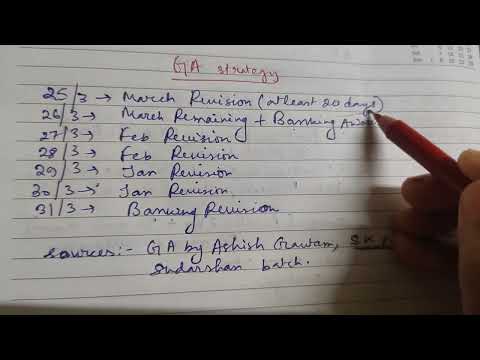 GA strategy
25/3 → March Revision (atleast 20 days)
26/3 → March Remaining + Banking
27/3 → Feb Revision
28/3 → Feb Revision
29/3 → Jan Revision
30/3 → Jan Revision
31/3 → Banking Revision
Sources:- GA by Ashish Gautam,
Sudarshan batch.